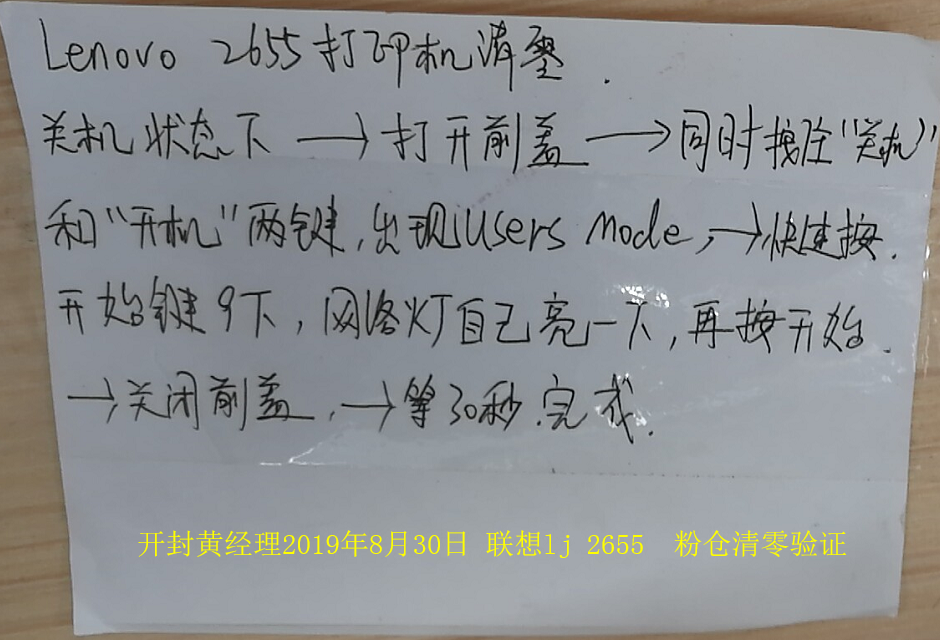 Lenovo 2655打印机清零.
关机状态下 → 打开前盖 → 同时按住“关机”
和“开机”两键,出现Users Mode, → 快速按.
开始键9下, 网络灯自己亮一下, 再按开始.
→ 关闭前盖, → 等30秒.完成.
开封黄经理2019年8月30日 联想lj 2655 粉仓清零验证